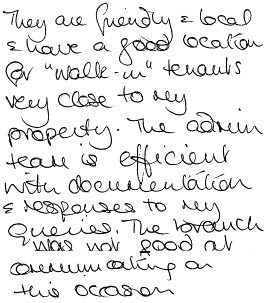 They are friendly & local
& have a good location
for "walk-in" tenants
very close to my
property. The admin
team is efficient
with documentation
& responses to my
queries. The branch
was not good at
communicating on
this occasion